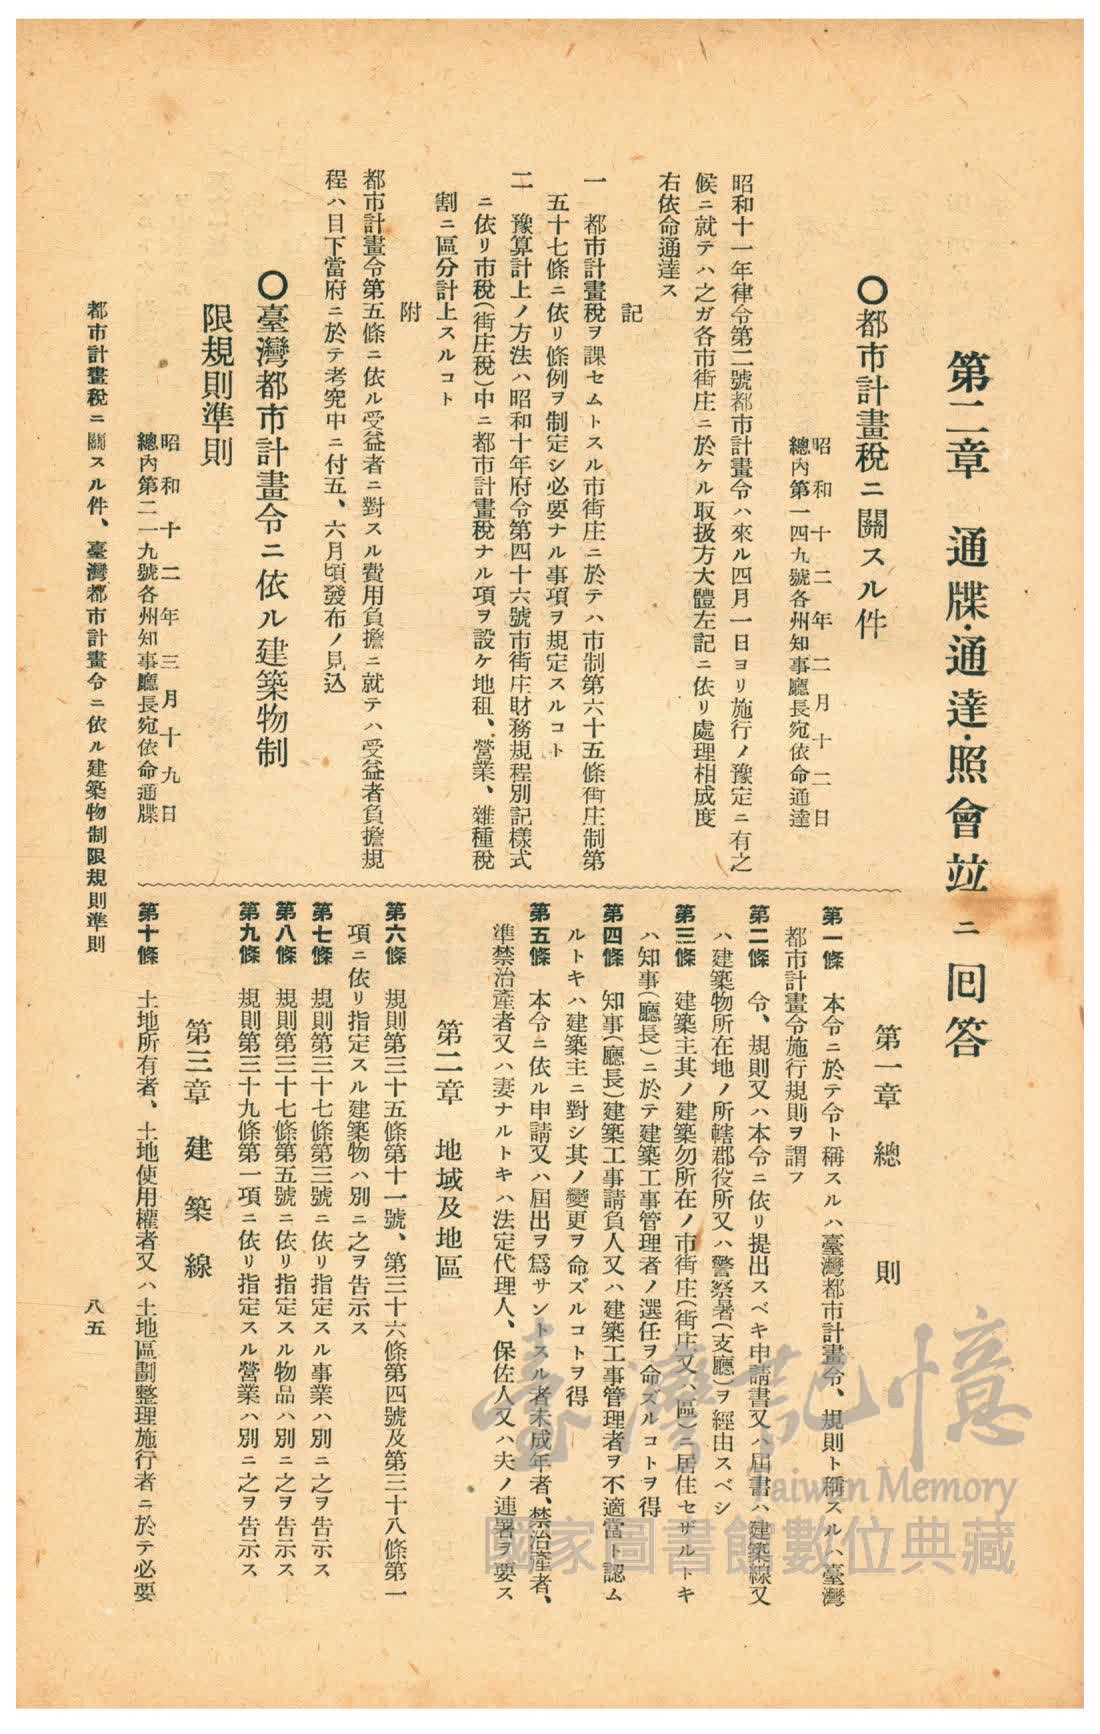 第二章　通牒・通達・照會竝ニ回答
〇都市計畫稅ニ關スル件
昭和十二年二月十二日
總內第一四九號各州知事廳長宛依命通達
昭和十一年律令第二號都市計畫令ハ來ル四月一日ヨリ施行ノ豫定ニ有之
候ニ就テハ之ガ各市街庄ニ於ケル取扱方大體左記ニ依リ處理相成度
右依命通達ス
記
一　都市計畫稅ヲ課セムトスル市街庄ニ於テハ市制第六十五條街庄制第
五十七條ニ依リ條例ヲ制定シ必要ナル事項ヲ規定スルコト
二　豫算計上ノ方法ハ昭和十年府令第四十六號市街庄財務規程別記樣式
ニ依リ市稅(街庄稅)中ニ都市計畫稅ナル項ヲ設ケ地租、營業、雜種稅
割ニ區分計上スルコト
附
都市計畫令第五條ニ依ル受益者ニ對スル費用負擔ニ就テハ受益者負擔規
程ハ目下當府ニ於テ考究中ニ付五、六月頃發布ノ見込
〇臺灣都市計畫令ニ依ル建築物制
限規則準則
昭和十二年三月十九日
總內第二一九號各州知事廳長宛依命通牒
第一章　總則
第一條　本令ニ於テ令ト稱スルハ臺灣都市計畫令、規則ト稱スルハ臺灣
都市計畫令施行規則ヲ謂フ
第二條　令、規則又ハ本令ニ依リ提出スベキ申請書又ハ屆書ハ建築線又
ハ建築物所在地ノ所轄郡役所又ハ警察署(支廳)ヲ經由スベシ
第三條　建築主其ノ建築物所在ノ市街庄(街庄又ハ區)ニ居住セザルトキ
ハ知事(廳長)ニ於テ建築工事管理者ノ選任ヲ命ズルコトヲ得
第四條　知事(廳長)建築工事請負人又ハ建築工事管理者ヲ不適當ト認ム
ルトキハ建築主ニ對シ其ノ變更ヲ命ズルコトヲ得
第五條　本令ニ依ル申請又ハ屆出ヲ爲サントスル者未成年者、禁治產者、
準禁治產者又ハ妻ナルトキハ法定代理人、保佐人又ハ夫ノ連署ヲ要ス
第二章　地域及地區
第六條　規則第三十五條第十一號、第三十六條第四號及第三十八條第一
項ニ依リ指定スル建築物ハ別ニ之ヲ告示ス
第七條　規則第三十七條第三號ニ依リ指定スル事業ハ別ニ之ヲ告示ス
第八條　規則第三十七條第五號ニ依リ指定スル物品ハ別ニ之ヲ告示ス
第九條　規則第三十九條第一項ニ依リ指定スル營業ハ別ニ之ヲ告示ス
第三章　建築線
第十條　土地所有者、土地使用權者又ハ土地區劃整理施行者ニ於テ必要
都市計畫稅ニ關スル件、臺灣都市計畫令ニ依ル建築物制限規則準則
八五
臺灣記憶
Taiwan Memory
國家圖書館數位典藏